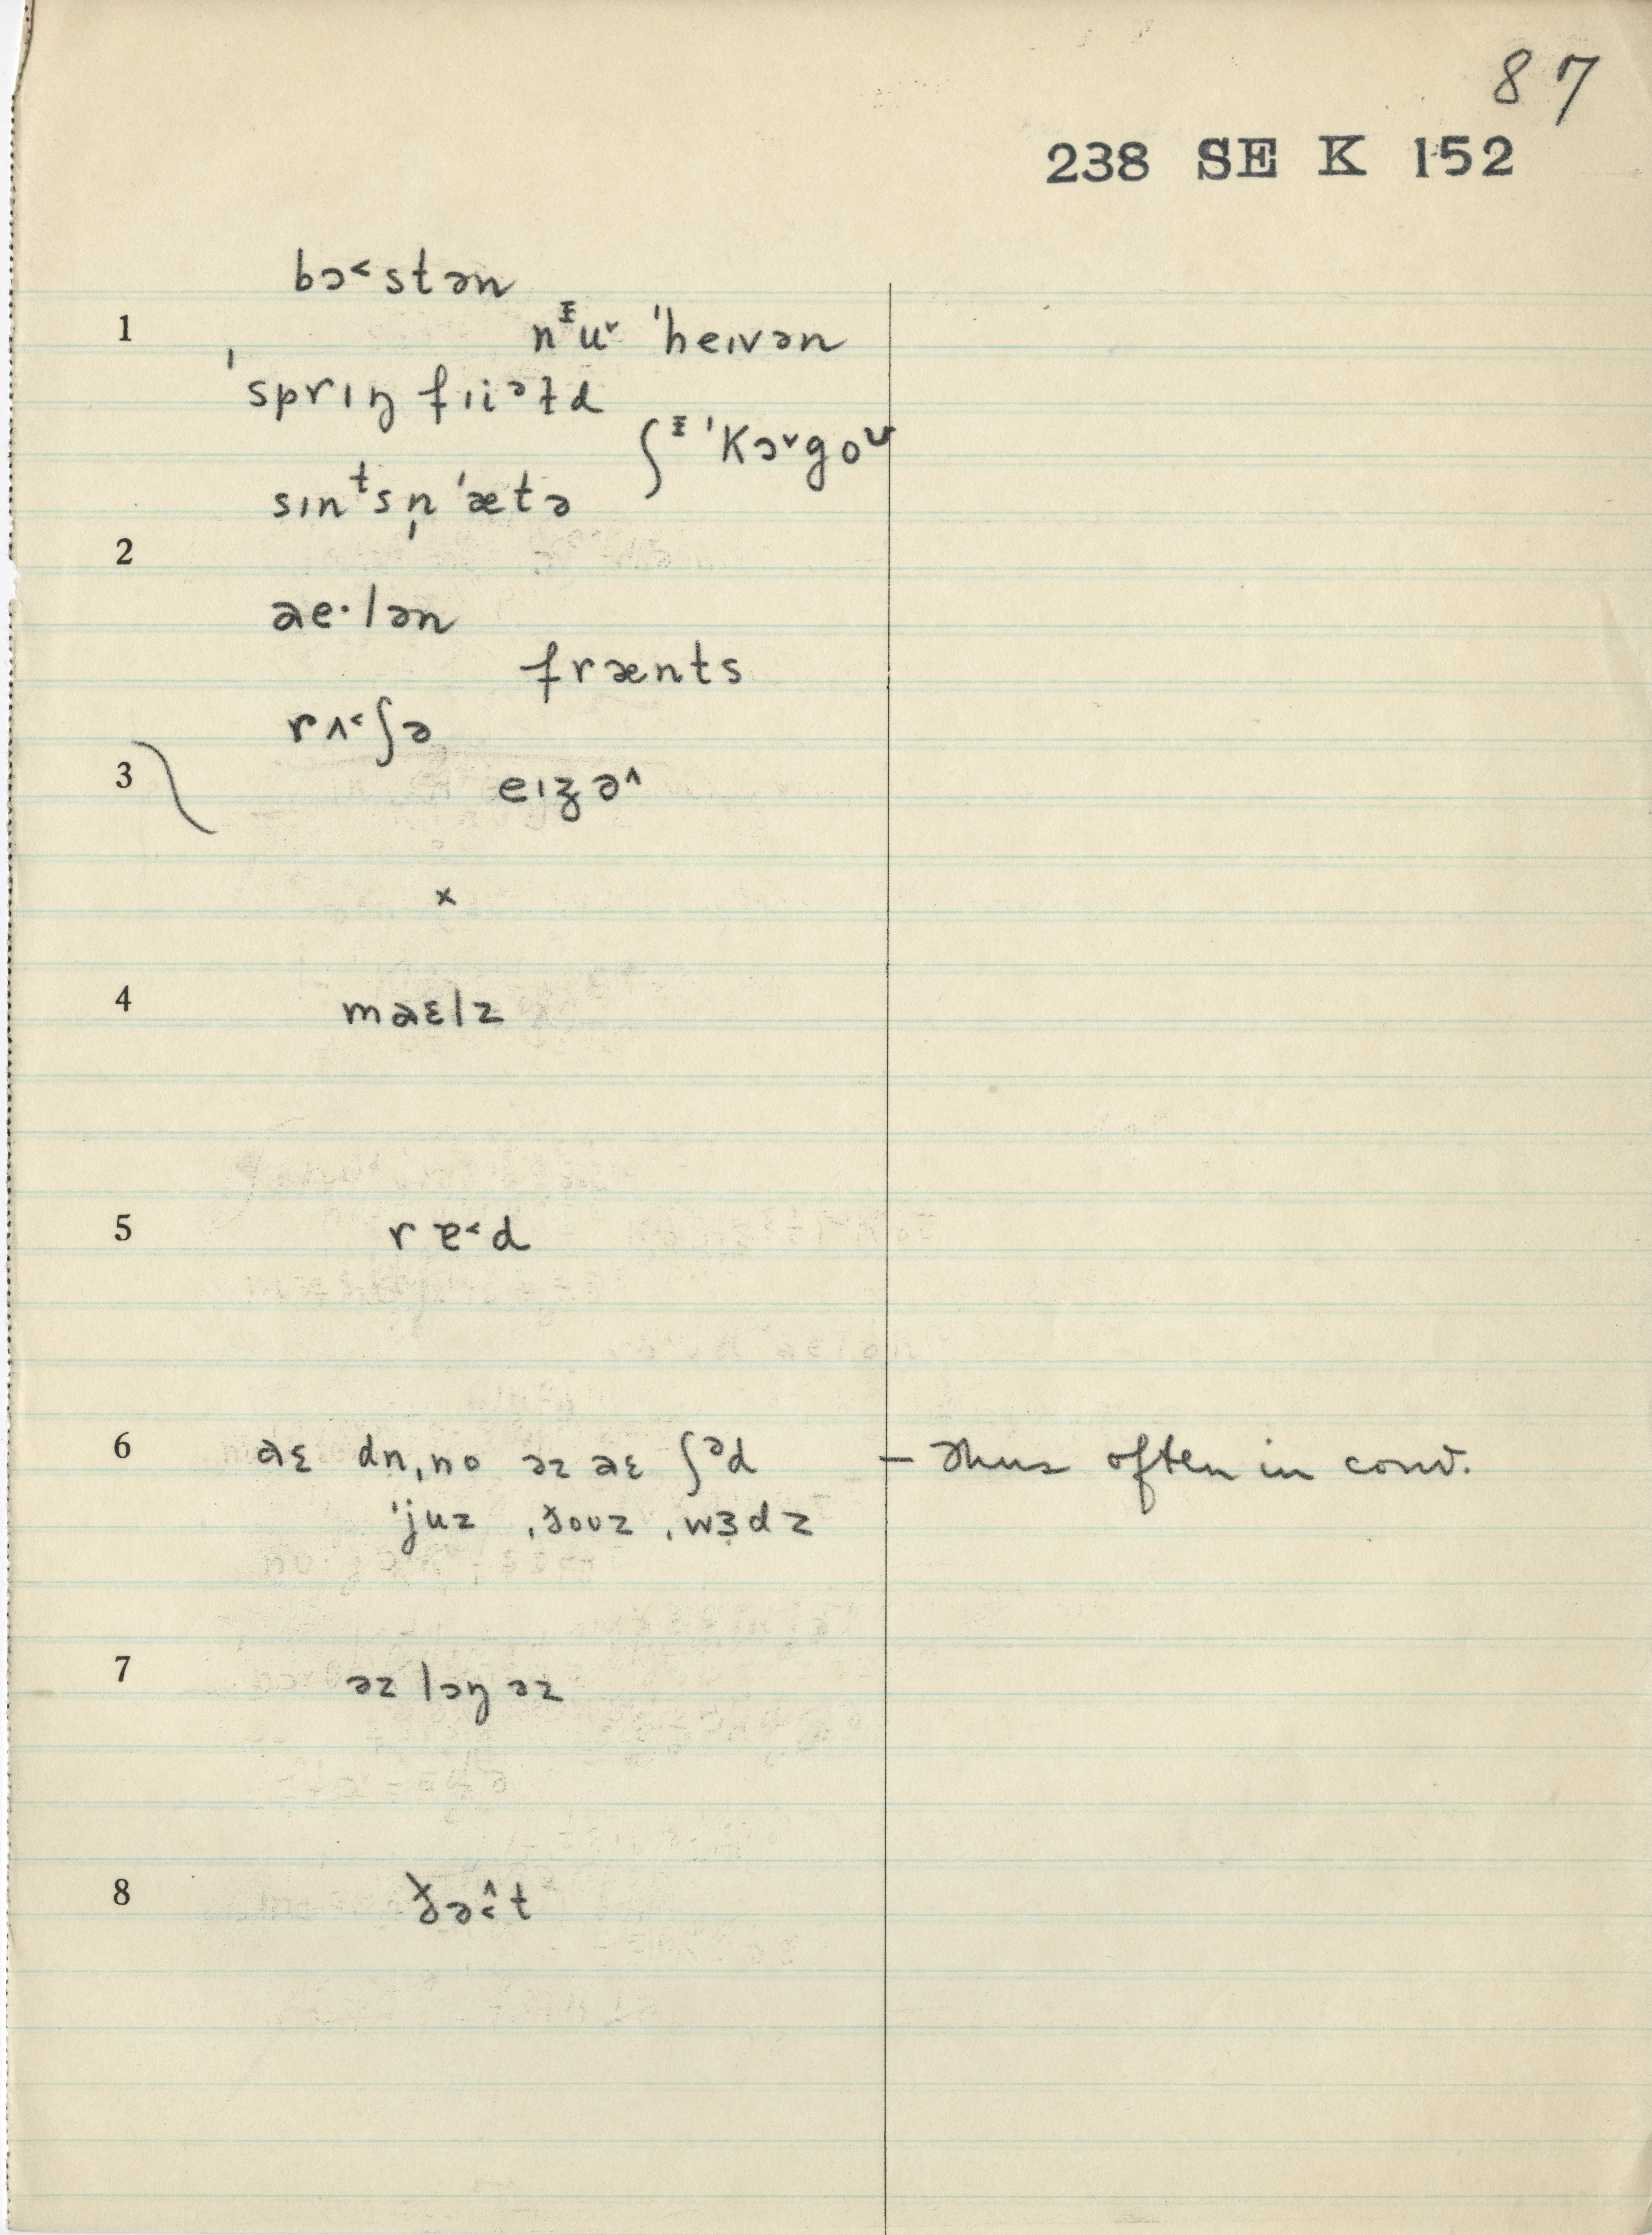 87
238 SE K 152
bɔ˂stən
1 nᵻu˅ ˈheɪvən
ˈsprɪŋ fɪiᵊɫd
ʃᵻ ˈkɔ˅goᶷ
sɪnᵗsn̩ ˈætə
2
ae·lən
frænts
rʌ˂ʃə
3 eɪʒə˄
x
4 maɛlz
5 rɛ˂d
6 aɛ dn̩no əz aɛ ʃᵊd – Thus often in conv.
ˈjuz ˌðouz ˌwɜdz
7 əz lɔŋ əz
8 ðə˂˄t